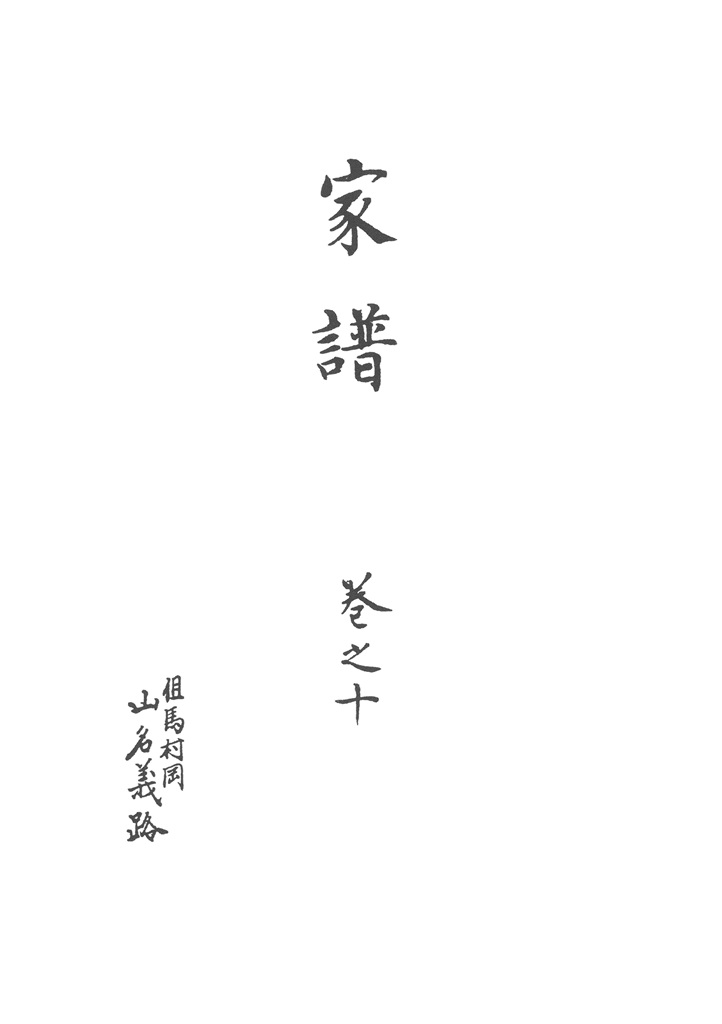 家譜
巻之十
但馬村岡
山名義路